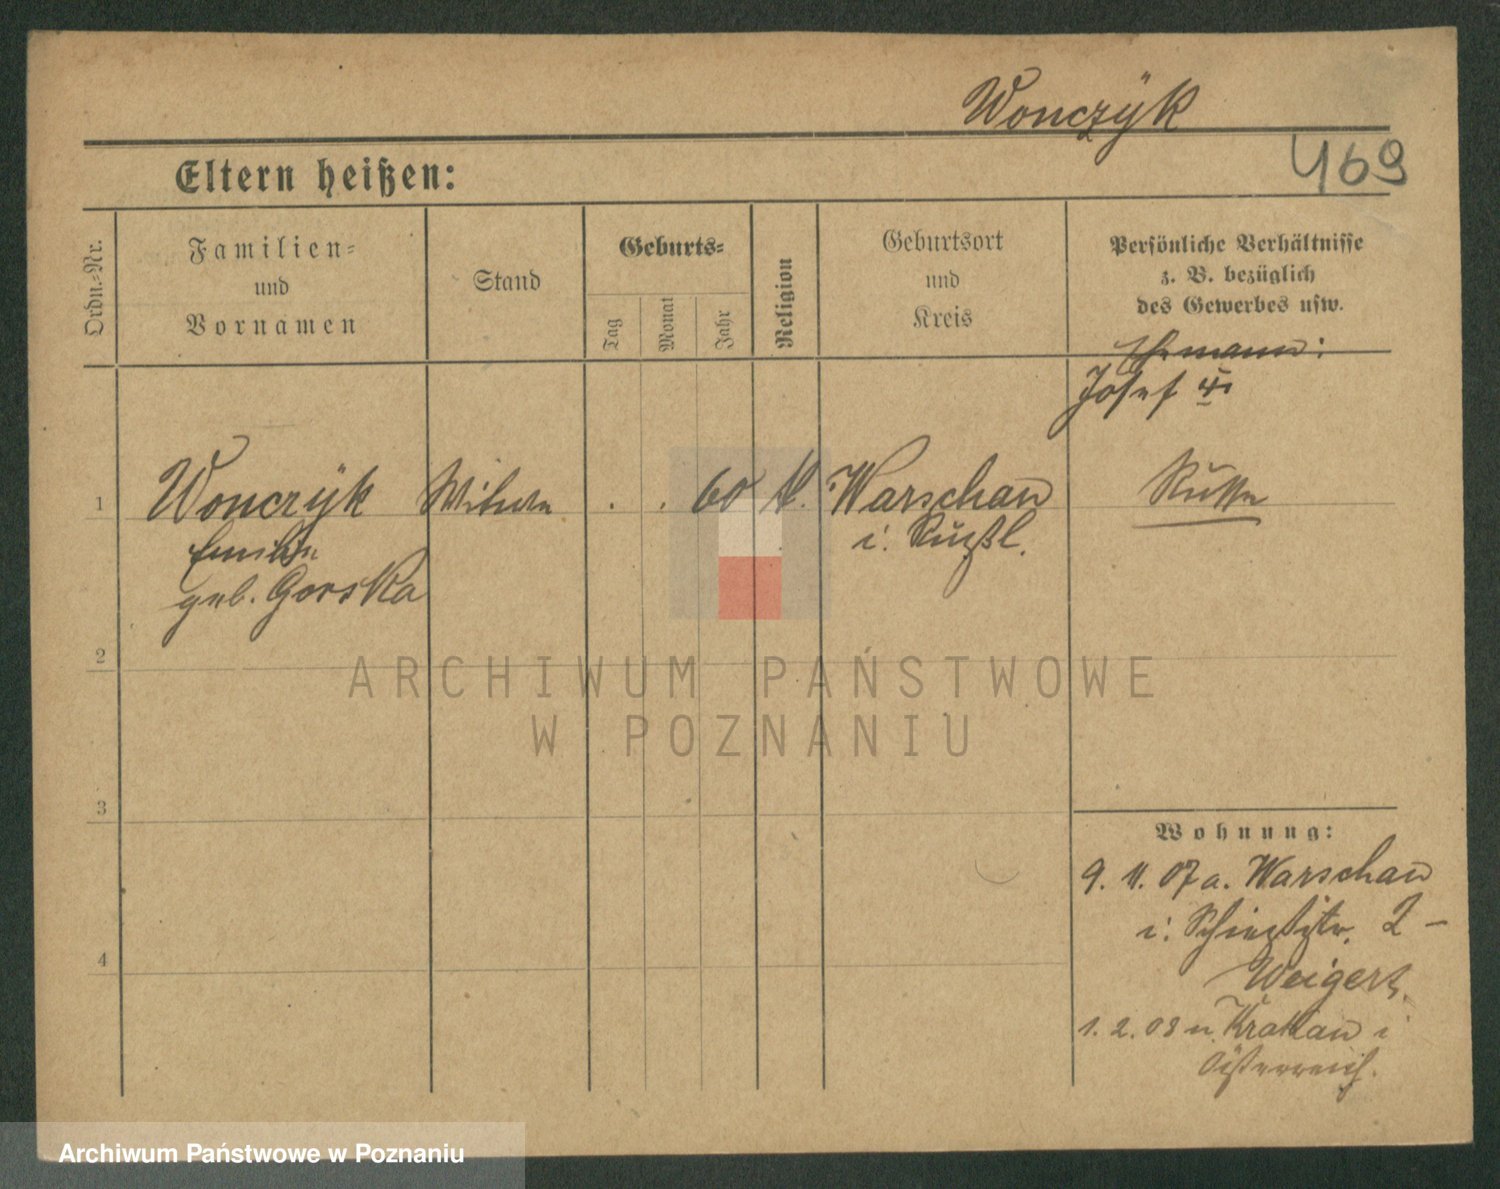 Wonczÿk
469
Eltern heißen:
Ordn.-Nr.
Familien-
und
Vornamen
Stand
Geburts-
Tag
Monat
Jahr
Religion
Geburtsort
und
Kreis
Persönliche Verhältnisse
z. B. bezüglich
des Gewerbes usw.
Ehemann:
Josef
1 Wonczÿk Witwe . . 60 k. Warschau Russe
Emilie i. Rußl.
geb. Gorska
ARCHIWUM PAŃSTWOWE
W POZNANIU
2
3
4
Wohnung:
9. 11. 07 a. Warschau
i. Schießstr. 2 -
Weigert
1. 2. 08 n. Krakau i
Österreich.
Archiwum Państwowe w Poznaniu